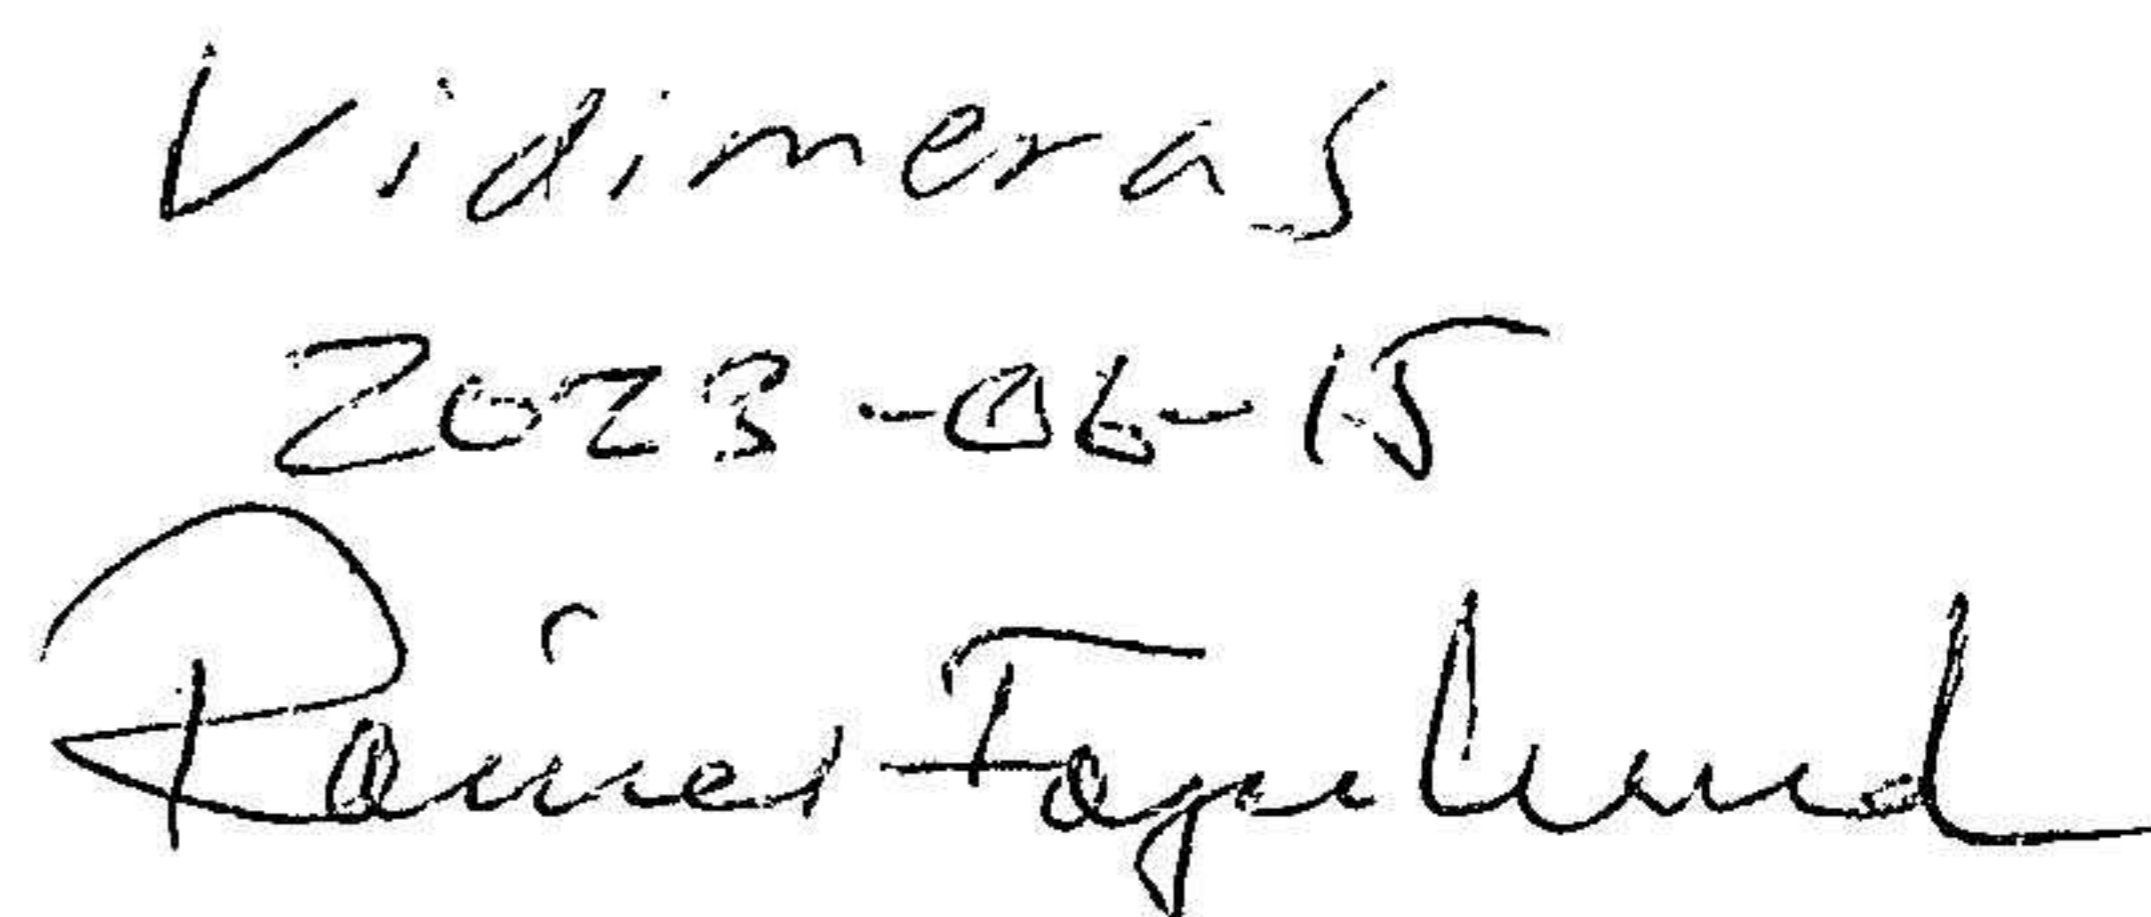 Vidimeras
2023-06-15
Rainer Fagerlund